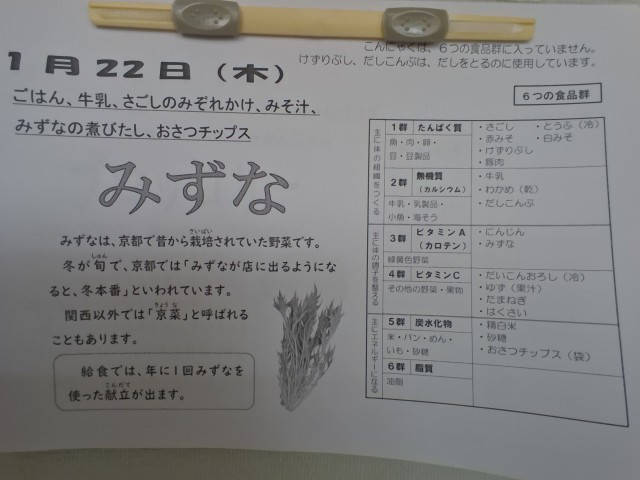 こんにゃくは、6つの食品群に入っていません。
けずりぶし、だしこんぶは、だしをとるのに使用しています。
1月22日(木)
ごはん、牛乳、さごしのみぞれかけ、みそ汁、
みずなの煮びたし、おさつチップス
みずな
みずなは、京都で昔から栽培されていた野菜です。
さいばい
冬が旬で、京都では「みずなが店に出るようにな
しゅん
ると、冬本番」といわれています。
関西以外では「京菜」と呼ばれる
きょうな
こともあります。
給食では、年に1回みずなを
使った献立が出ます。
こんだて
6つの食品群
主に体の組織をつくる
1群 たんぱく質
魚・肉・卵・
豆・豆製品
・さごし ・とうふ(冷)
・赤みそ ・白みそ
・けずりぶし
・豚肉
2群 無機質
(カルシウム)
牛乳・乳製品・
小魚・海そう
・牛乳
・わかめ(乾)
・だしこんぶ
主に体の調子を整える
3群 ビタミンA
(カロテン)
緑黄色野菜
・にんじん
・みずな
4群 ビタミンC
その他の野菜・果物
・だいこんおろし(冷)
・ゆず(果汁)
・たまねぎ
・はくさい
主にエネルギーになる
5群 炭水化物
米・パン・めん・
いも・砂糖
・精白米
・砂糖
・おさつチップス(袋)
6群 脂質
油脂